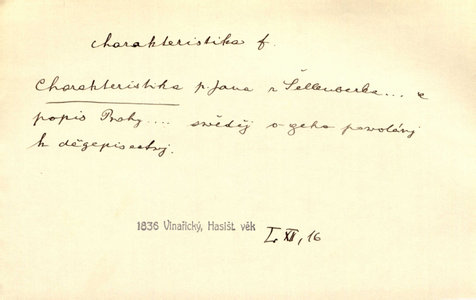 charakteristika f.
Charakteristika p. Jana z Šellenberka... a
popis Prahy.... svědčj o geho powolánj
k děgepisectwj.
1836 Vinařický, Hasišt. věk L XII, 16